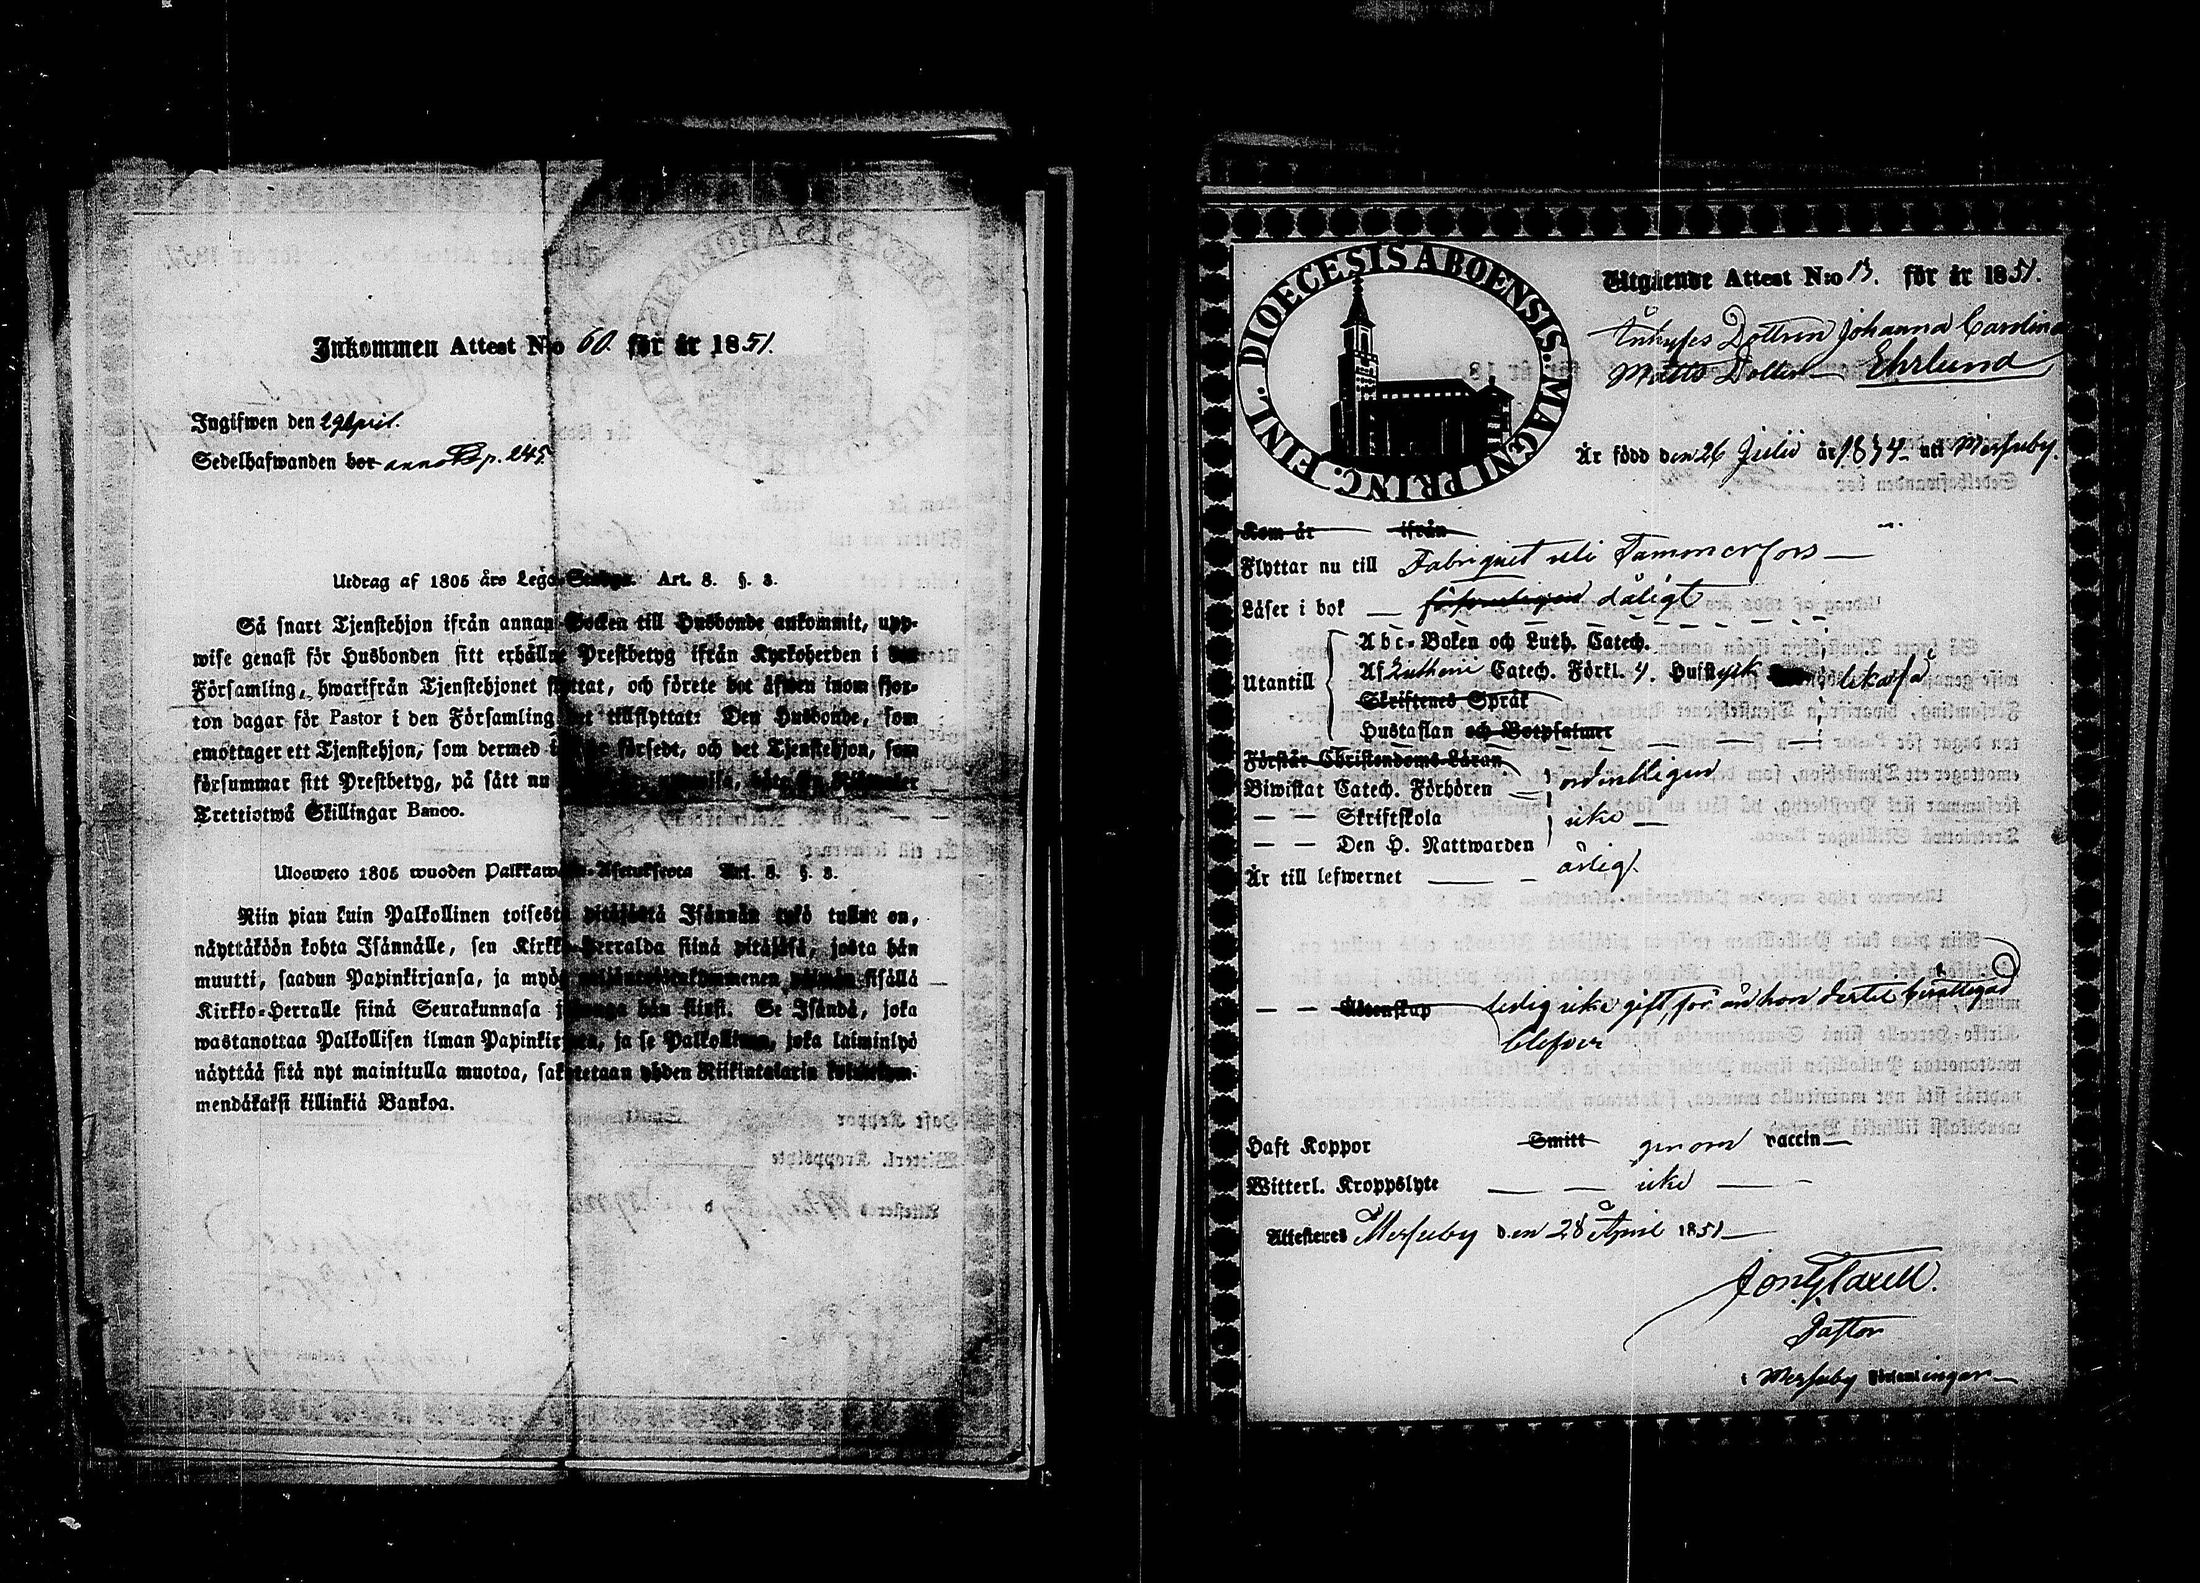 Inkommen Attest N:o 60. för år 1851.
Ingifwen den 29 April.
Sedelhafwanden bor anno p. 245
Utdrag af 1805 års Lego-Stadga. Art. 8. §. 3.
Så snart Tjenstehjon ifrån annan Socken till Husbonde ankommit, upp-
wise genast för Husbonden sitt erhållne Prestbetyg ifrån Kyrkoherden i den
Församling, hwarifrån Tjenstehjonet flyttat, och förete det äfwen inom fjor-
ton dagar för Pastor i den Församling det tillflyttat: Den Husbonde, som
emottager ett Tjenstehjon, som dermed försedt, och det Tjenstehjon, som
försummar sitt Prestbetyg, på sätt nu
Trettiotwå Skillingar Banco.
Ulosweto 1805 wuoden Palkkawäen-Asetuksesta Art. 8. §. 3.
Niin pian kuin Palkollinen toisesta pitäjästä Isännän tykö tullut on,
näyttäköön kohta Isännälle, sen Kirkko-Herralda siinä pitäjäsä, josta hän
muutti, saadun Papinkirjansa, ja myös neljäntoistakymmenen päiwän sisällä
Kirkko-Herralle siinä Seurakunnasa johonga hän siirsi. Se Isändä, joka
wastanottaa Palkollisen ilman Papinkirjata, ja se Palkollinen, joka laiminlyö
näyttää sitä nyt mainitulla muotoa, sakotetaan yhden Riikintalarin kolmekym-
mendäkaksi killinkiä Bankoa.
FINL. DIOECESIS ABOENSIS. MAGNI PRINC.
Utgående Attest N:o 13. för år 1851.
Inhyses Dottren Johanna Carolina
Matts Dotter Ehrlund
Är född den 26 Julii år 1834 uti Messuby.
Kom år ifrån
Flyttar nu till Fabriquet uti Tammerfors
Läser i bok dåligt
Abc-Boken och Luth. Catech.
Utantill Af Lutheri Catech. Förkl. 4. Husstyck likaså
Skriftenes Språk
Hustaflan och Botpsalmer
Förstår Christendoms Läran
Biwistat Catech. Förhören ordentligen
— — Skriftskola icke
— — Den H. Nattwarden
Är till lefwernet ärlig.
— — Ägtenskap ledig icke gift, för än hon dertil berättigad
blefver
Haft Koppor Smitt genom vaccin
Witterl. Kroppslyte icke
Attesteres Messuby den 28 April 1851
Pastor
i Messuby Församlingar